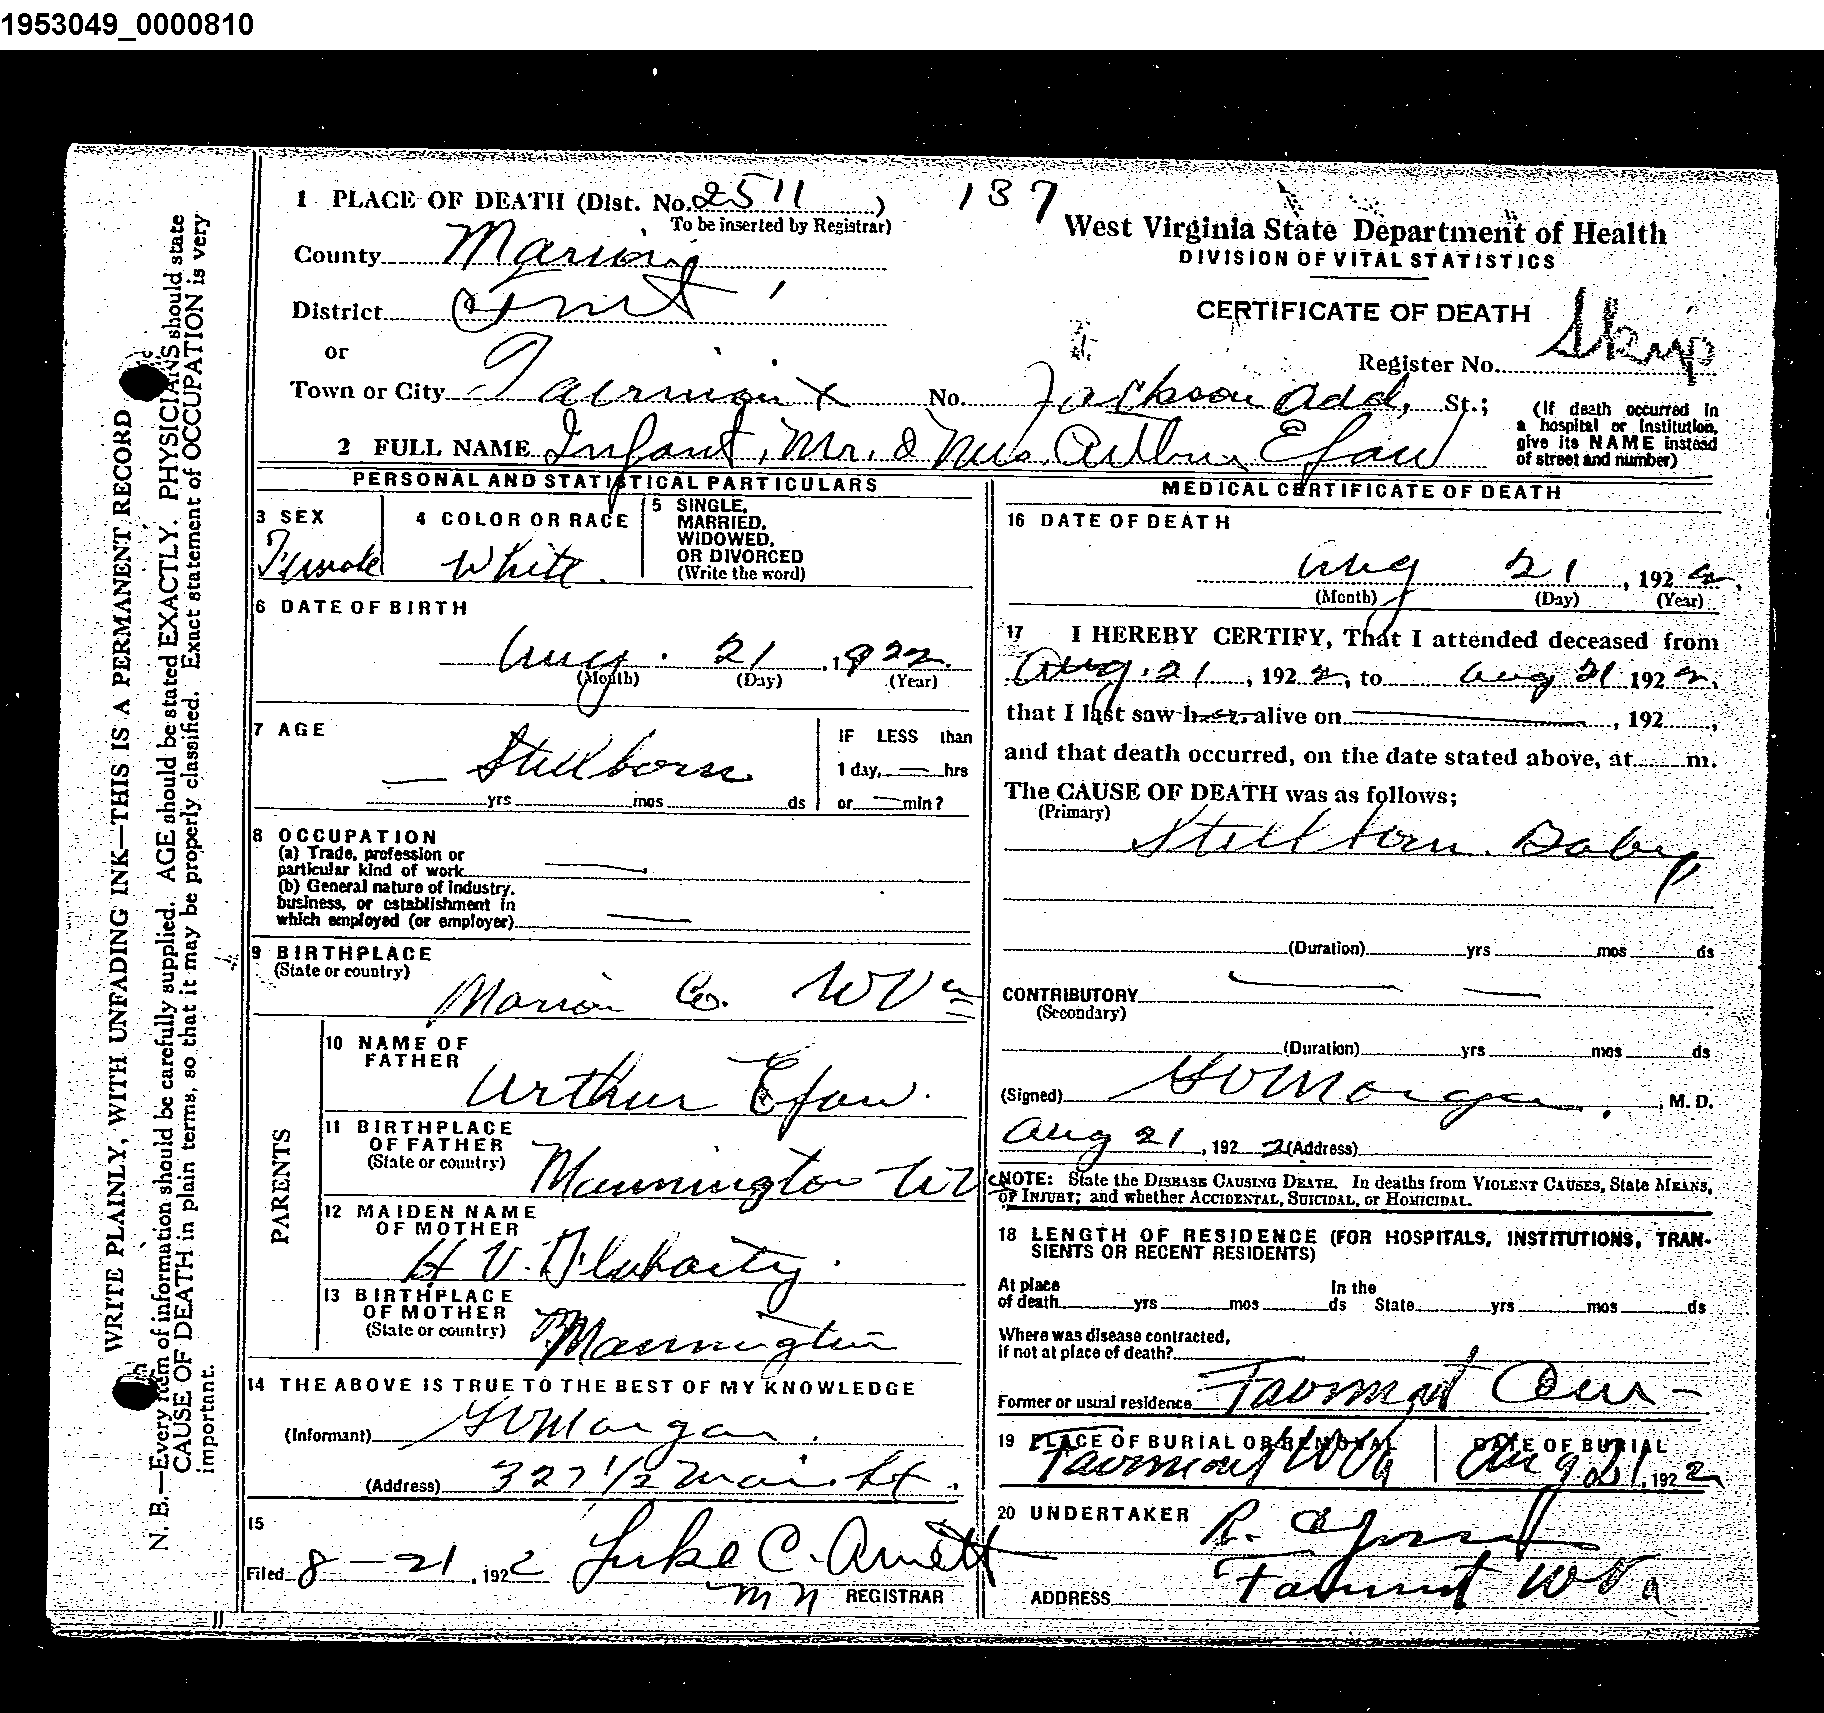 1953049_0000810
WRITE PLAINLY, WITH UNFADING INK—THIS IS A PERMANENT RECORD
N. B.—Every item of information should be carefully supplied. AGE should be stated EXACTLY. PHYSICIANS should state
CAUSE OF DEATH in plain terms, so that it may be properly classified. Exact statement of OCCUPATION is very
important.
1 PLACE OF DEATH (Dist. No. 2511 )
To be inserted by Registrar)
137
West Virginia State Department of Health
DIVISION OF VITAL STATISTICS
CERTIFICATE OF DEATH
County Marion
District
or
Register No. Skip
Town or City Fairmont No. Jackson Add. St.;
(If death occurred in
a hospital or institution,
give its NAME instead
of street and number)
2 FULL NAME Infant, Mr. & Mrs. Arthur Efaw
PERSONAL AND STATISTICAL PARTICULARS
3 SEX
Female
4 COLOR OR RACE
White
5 SINGLE,
MARRIED,
WIDOWED,
OR DIVORCED
(Write the word)
6 DATE OF BIRTH
Aug. 21, 1922
(Month) (Day) (Year)
7 AGE
Stillborn
yrs mos ds
IF LESS than
1 day, — hrs
or — min?
8 OCCUPATION
(a) Trade, profession or
particular kind of work —
(b) General nature of industry,
business, or establishment in
which employed (or employer) —
9 BIRTHPLACE
(State or country)
Marion Co. W Va
PARENTS
10 NAME OF
FATHER
Arthur Efaw.
11 BIRTHPLACE
OF FATHER
(State or country)
Mannington W Va
12 MAIDEN NAME
OF MOTHER
H V. Flaharty.
13 BIRTHPLACE
OF MOTHER
(State or country)
Mannington
14 THE ABOVE IS TRUE TO THE BEST OF MY KNOWLEDGE
(Informant) Morgan.
(Address) 327 1/2 Main St.
15
Filed 8-21, 1922 Luke C. Arnett
M N REGISTRAR
MEDICAL CERTIFICATE OF DEATH
16 DATE OF DEATH
Aug 21, 1922
(Month) (Day) (Year)
17 I HEREBY CERTIFY, That I attended deceased from
Aug. 21, 1922, to Aug 21 1922,
that I last saw h alive on —, 192 ,
and that death occurred, on the date stated above, at m.
The CAUSE OF DEATH was as follows;
(Primary)
Still born Baby
(Duration) yrs mos ds
CONTRIBUTORY — —
(Secondary)
(Duration) yrs mos ds
(Signed) Morgan, M. D.
Aug 21, 1922 (Address)
NOTE: State the DISEASE CAUSING DEATH. In deaths from VIOLENT CAUSES, State MEANS,
OF INJURY; and whether ACCIDENTAL, SUICIDAL, or HOMICIDAL.
18 LENGTH OF RESIDENCE (FOR HOSPITALS, INSTITUTIONS, TRAN-
SIENTS OR RECENT RESIDENTS)
At place
of death yrs mos ds
In the
State yrs mos ds
Where was disease contracted,
if not at place of death?
Former or usual residence Fairmont
19 PLACE OF BURIAL OR REMOVAL
Fairmont W Va
DATE OF BURIAL
Aug 21, 1922
20 UNDERTAKER R. C. Jones
ADDRESS Fairmont W Va